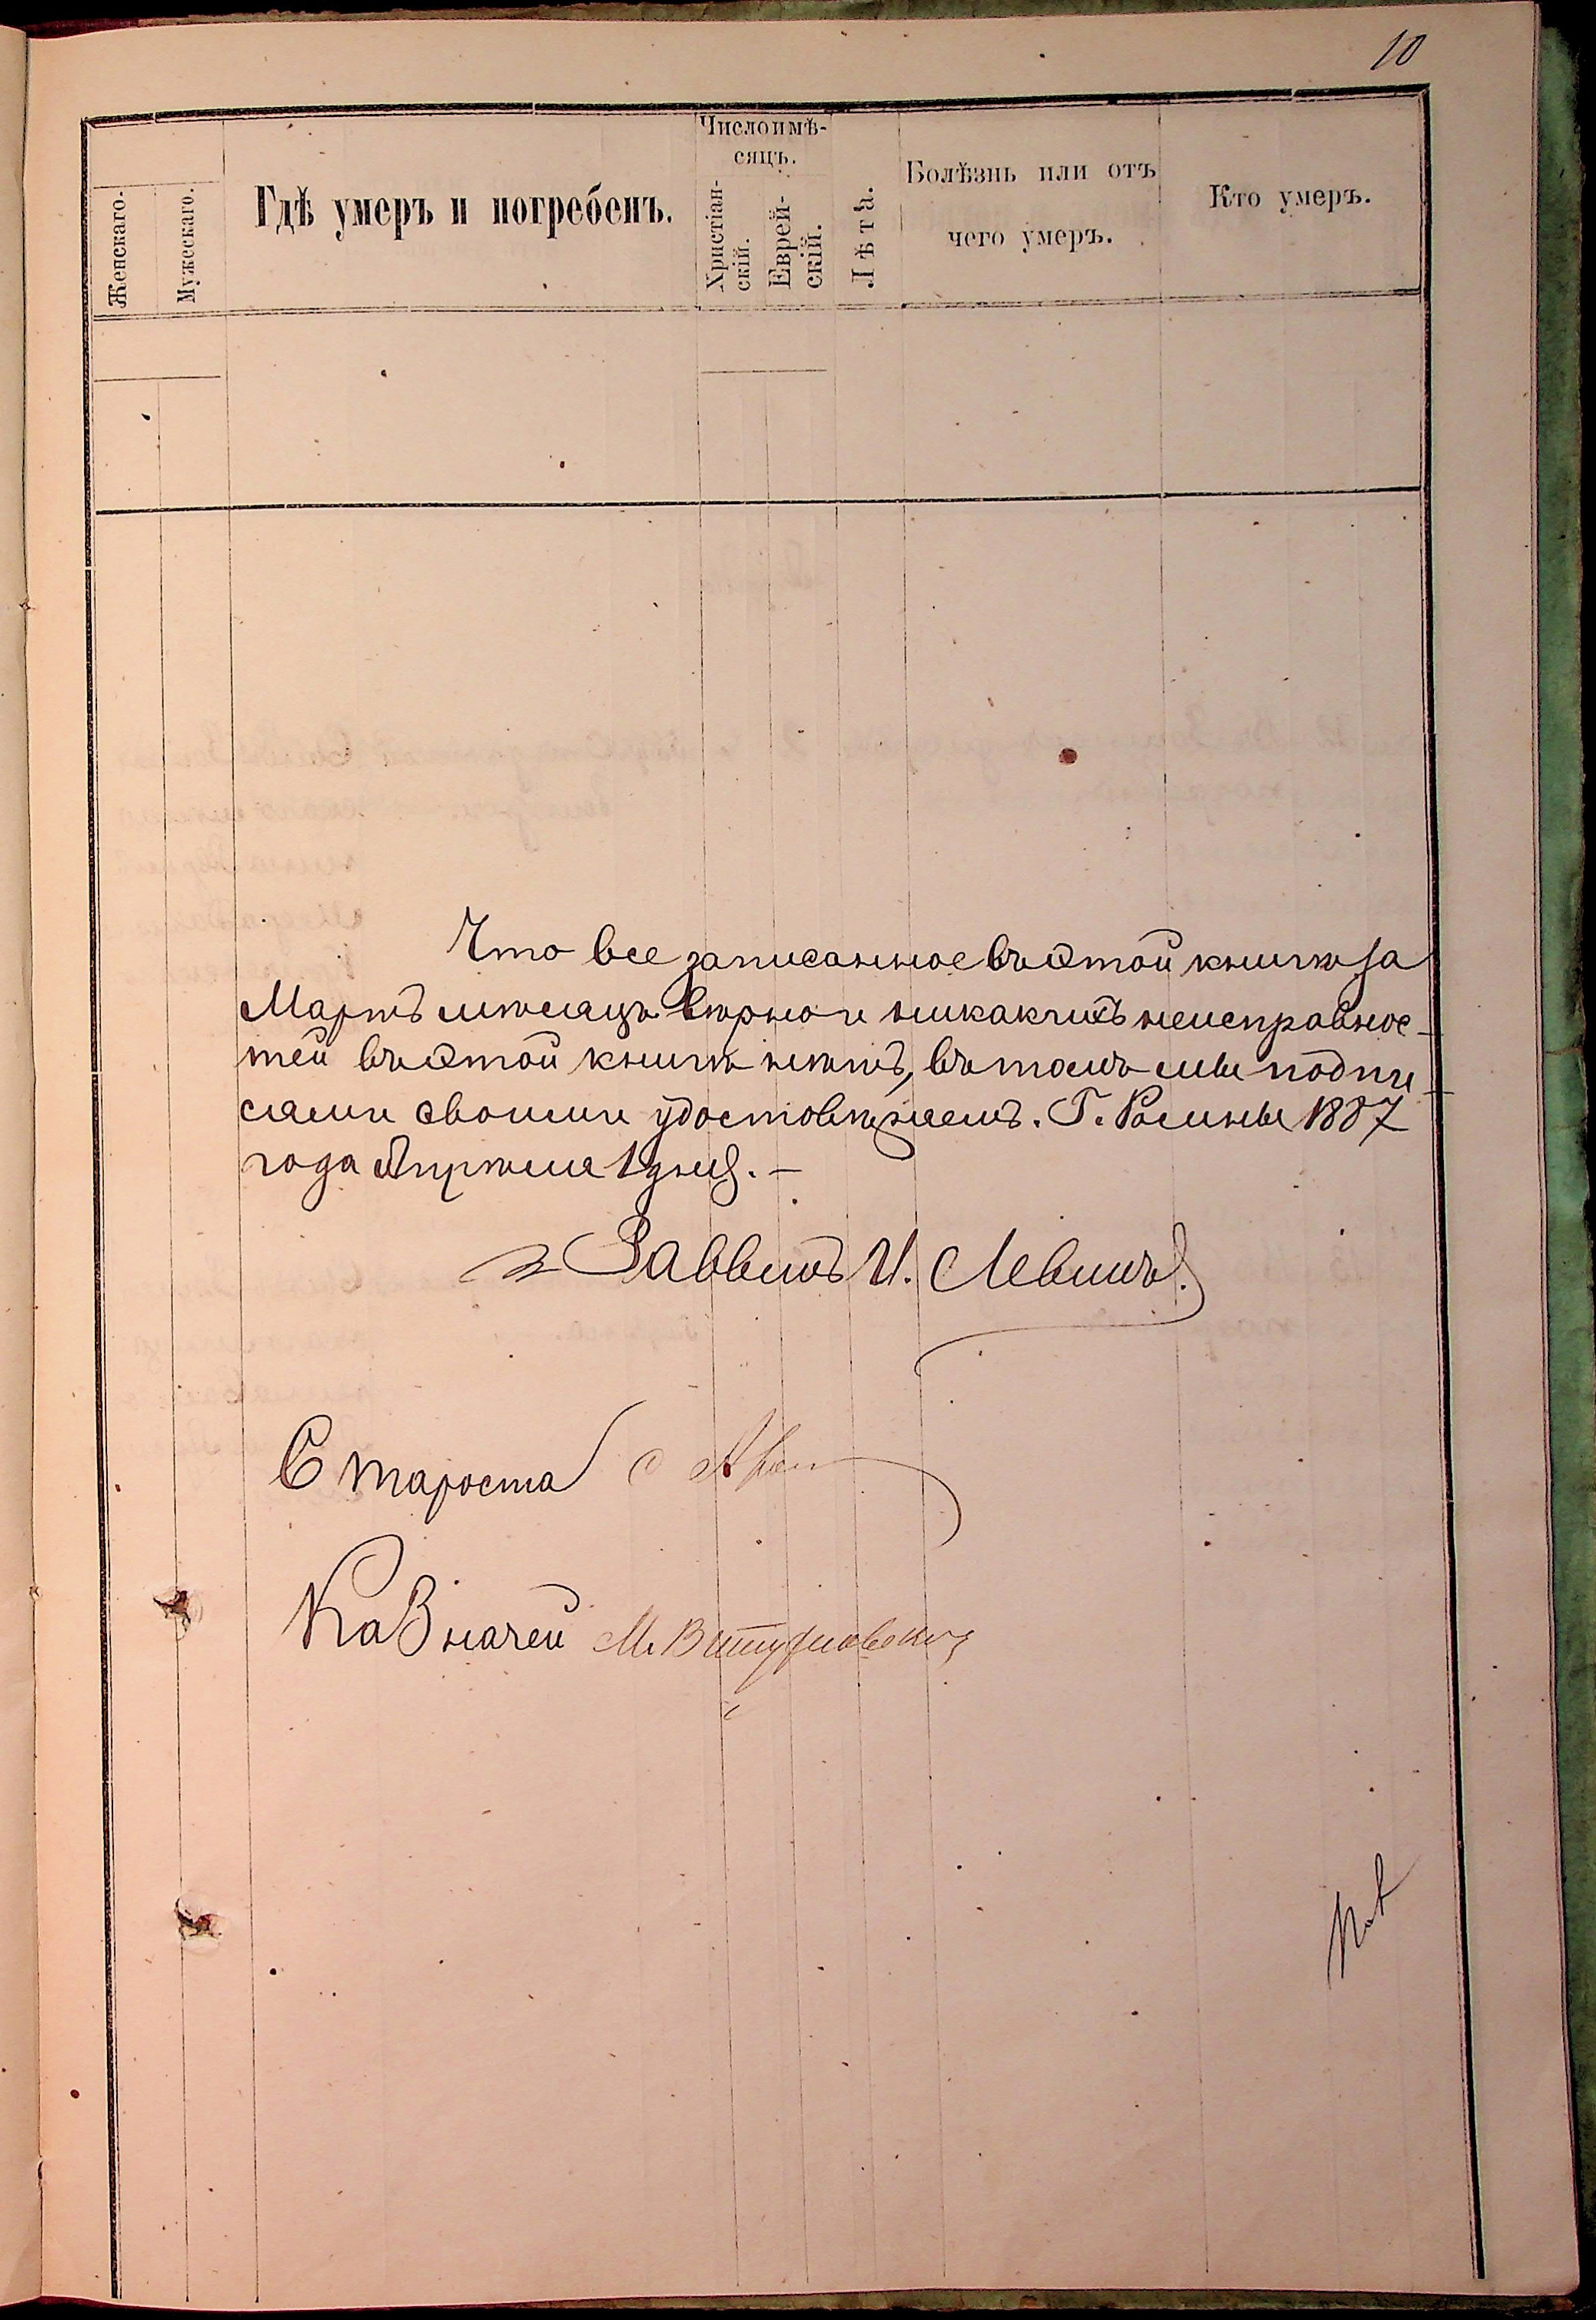 10
Женскаго.
Мужескаго.
Гдѣ умеръ и погребенъ.
Число и мѣ-
сяцъ.
Христіан-
скій.
Еврей-
скій.
Лѣта.
Болѣзнь или отъ
чего умеръ.
Кто умеръ.
Что все записанное въ этой книгѣ за
Мартъ мѣсяцъ вѣрно и никакихъ неисправнос-
тей въ этой книгѣ нѣтъ, въ томъ мы подпи-
сями своими удостовѣряемъ. Г. Ромны 1887
года Апрѣля 1 дня. –
Раввинъ И. Левинъ.
Староста
Казначей М.